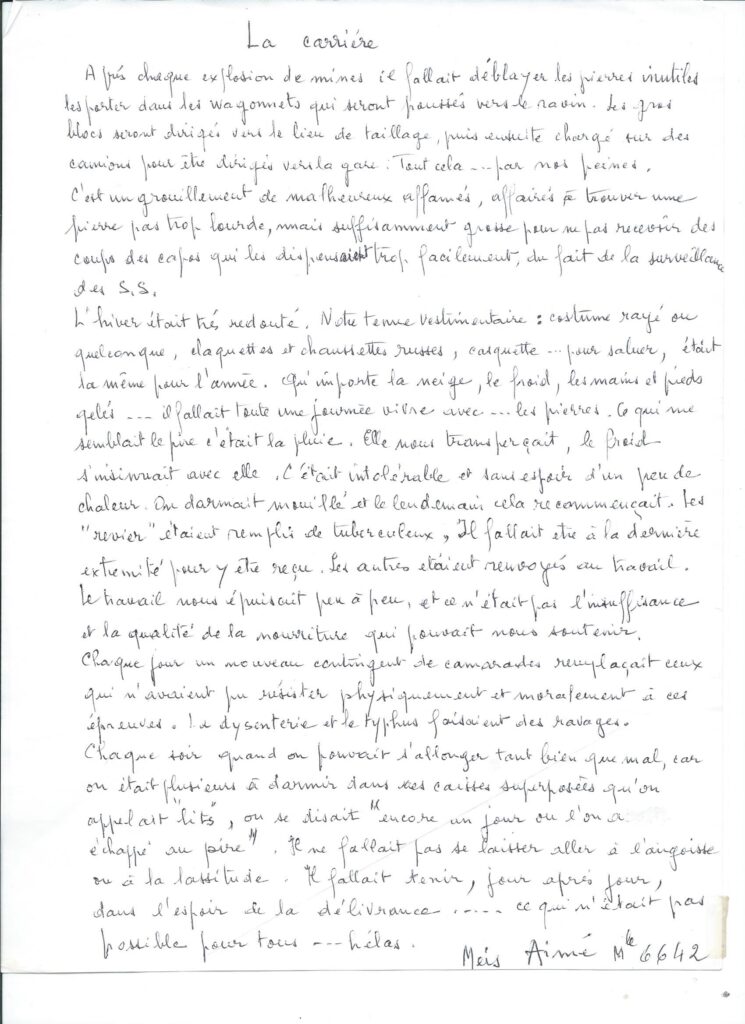 La carriére
Aprés chaque explosion de mines il fallait déblayer les pierres inutiles
les porter dans les wagonnets qui seront poussés vers le ravin. Les gros
blocs seront dirigés vers le lieu de taillage, puis ensuite chargé sur des
camions pour être dirigés vers la gare. Tout cela --- par nos peines.
C'est un grouillement de malheureux affamés, affairés à trouver une
pierre pas trop lourde, mais suffisamment grosse pour ne pas recevoir des
coups des capos qui les dispensaient trop facilement, du fait de la surveillance
des S.S.
L'hiver était trés redouté. Notre tenue vestimentaire : costume rayé ou
quelconque, claquettes et chaussettes russes, casquette --- pour saluer, était
la même pour l'année. Qu'importe la neige, le froid, les mains et pieds
gelés --- il fallait toute une journée vivre avec --- les pierres. Ce qui me
semblait le pire c'était la pluie. Elle nous transperçait, le froid
s'insinuait avec elle. C'était intolérable et sans espoir d'un peu de
chaleur. On dormait mouillé et le lendemain cela recommençait. Les
"revier" étaient remplis de tuberculeux, Il fallait etre à la dernière
extremité pour y etre reçu. Les autres étaient renvoyés au travail.
Le travail nous épuisait peu à peu, et ce n'était pas l'insuffisance
et la qualité de la nourriture qui pouvait nous soutenir.
Chaque jour un nouveau contingent de camarades remplaçait ceux
qui n'avaient pu résister physiquement et moralement à ces
épreuves. La dysenterie et le typhus faisaient des ravages.
Chaque soir quand on pouvait s'allonger tant bien que mal, car
on était plusieurs à dormir dans ces caisses superposées qu'on
appelait "lits", on se disait "encore un jour ou l'on a
échappé au pire". Il ne fallait pas se laisser aller à l'angoisse
ou à la lassitude. Il fallait tenir, jour aprés jour,
dans l'espoir de la délivrance ..... ce qui n'était pas
possible pour tous --- hélas.
Meis Aimé Mle 6642